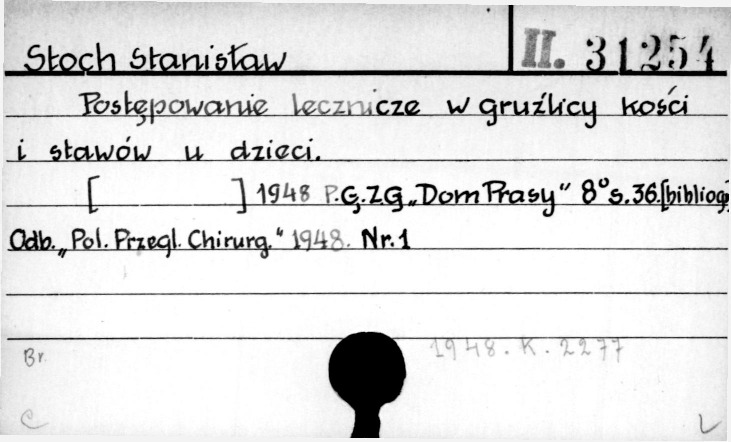 Stoch Stanisław
II. 31254
Postępowanie lecznicze w gruźlicy kości
i stawów u dzieci.
[ ] 1948 P.G.ZG „Dom Prasy" 8° s.36.[bibliogr]
Odb. „Pol. Przegl. Chirurg." 1948. Nr.1
Br.
1948. K. 2277
C
L